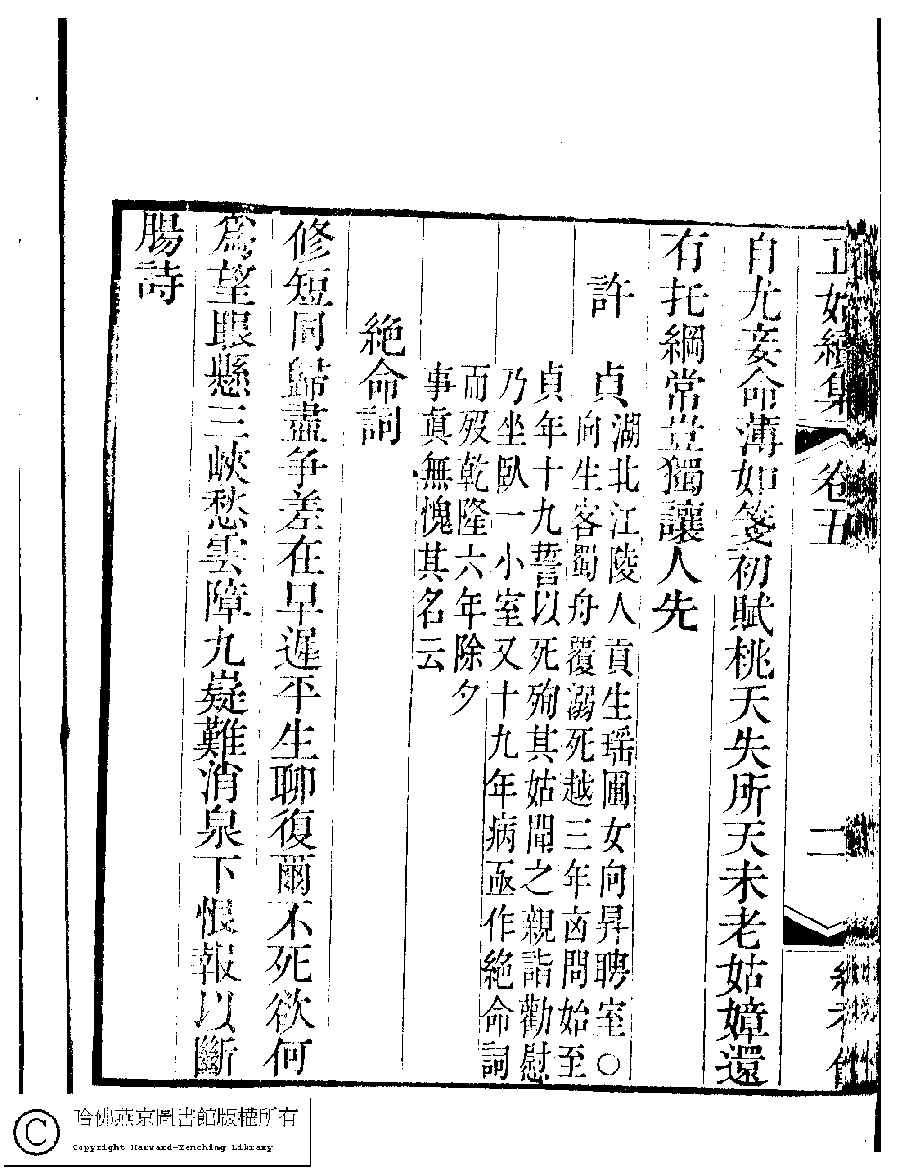 正始續集 卷五 二
自尤妾命薄如箋初賦桃夭失所天未老姑嫜還
有托綱常豈獨讓人先
許貞湖北江陵人貢生瑶圃女向昇聘室○
向生客蜀舟覆溺死越三年凶問始至
貞年十九誓以死殉其姑聞之親詣勸慰
乃坐臥一小室又十九年病亟作絕命詞
而歿乾隆六年除夕
事眞無愧其名云
絕命詞
修短同歸盡爭差在早遲平生聊復爾不死欲何
爲望眼懸三峽愁雲障九嶷難消泉下恨報以斷
腸詩
哈佛燕京圖書館版權所有
Copyright Harvard-Yenching Library